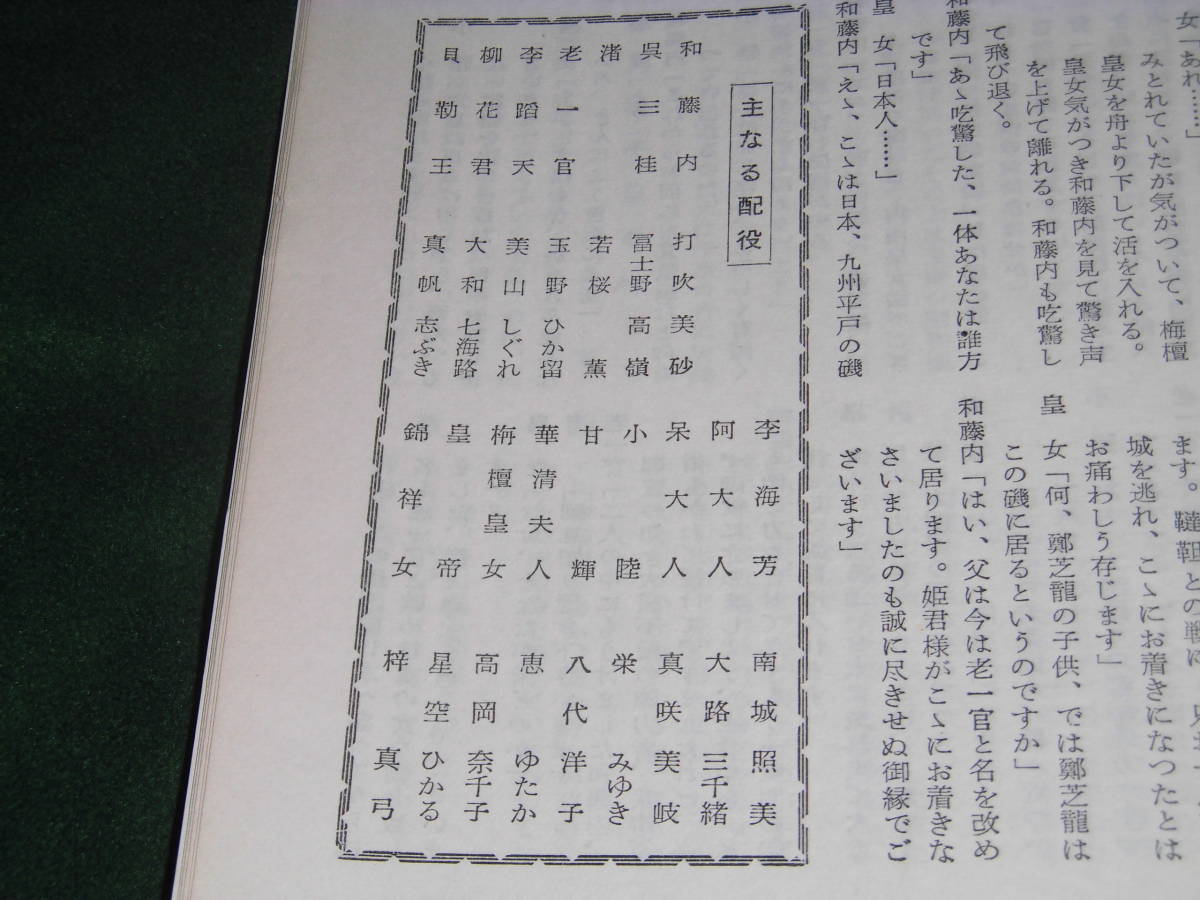 女「あれ……」
みとれていたが気がついて、梅檀
皇女を舟より下して活を入れる。
皇女気がつき和藤内を見て驚き声
を上げて離れる。和藤内も吃驚し
て飛び退く。
和藤内「あゝ吃驚した、一体あなたは誰方
です」
皇　女「日本人……」
和藤内「えゝ、こゝは日本、九州平戸の磯
ます。韃靼との戦に
城を逃れ、こゝにお着きになつたとは
お痛わしう存じます」
皇　女「何、鄭芝龍の子供、では鄭芝龍は
この磯に居るというのですか」
和藤内「はい、父は今は老一官と名を改め
て居ります。姫君様がこゝにお着きな
さいましたのも誠に尽きせぬ御縁でご
ざいます」
主なる配役
和藤内　打吹美砂
呉三桂　冨士野高嶺
渚　若桜薫
老一官　玉野ひか留
李蹈天　美山しぐれ
柳花君　大和七海路
貝勒王　真帆志ぶき
李海芳　南城照美
阿大人　大路三千緒
呆大人　真咲美岐
小睦　栄みゆき
甘輝　八代洋子
華清夫人　恵ゆたか
栴檀皇女　高岡奈千子
皇帝　星空ひかる
錦祥女　梓真弓